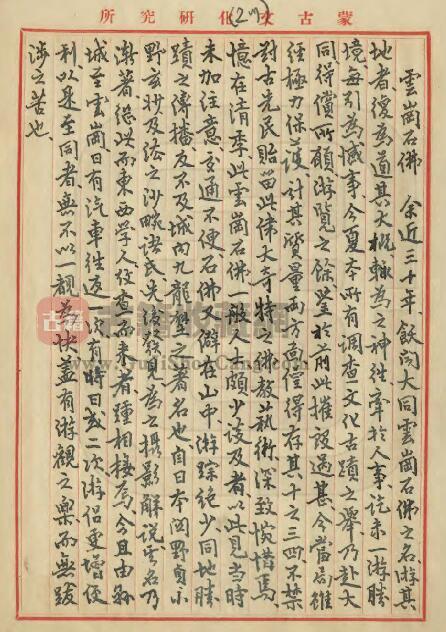 蒙古文化研究所
雲崗石佛　余近三十年、飫聞大同雲崗石佛之名、游其
地者、復為道其大概、輒為之神往、牽於人事、迄未一游勝
境、每引為憾事、今夏本所有調查文化古蹟之舉、乃赴大
同得償所願、游覽之餘、鑒於前此摧毀過甚、今當局雖
經極力保護、計其質量兩方、尚僅得存其十之三四、不禁
對古先民貽留此偉大奇特之佛教藝術、深致惋惜焉、
憶在清季、此雲崗石佛、一般人士頗少談及者、以此見當時
未加注意、交通不便、石佛又僻在山中、游踪絕少、同地勝
蹟之傳播、反不及城內九龍壁之著名也、自日本岡野貞、小
野玄妙及法之沙畹諸氏先後發見、為之攝影解說、其名乃
漸著、從此而東西學人考查而來者踵相接焉、今且由縣
城至雲崗、日有汽車往返一次、有時日或二次、游侶更增便
利、以是至同者、無不以一覩為快、蓋有游觀之樂、而無跋
涉之苦也、
古籍